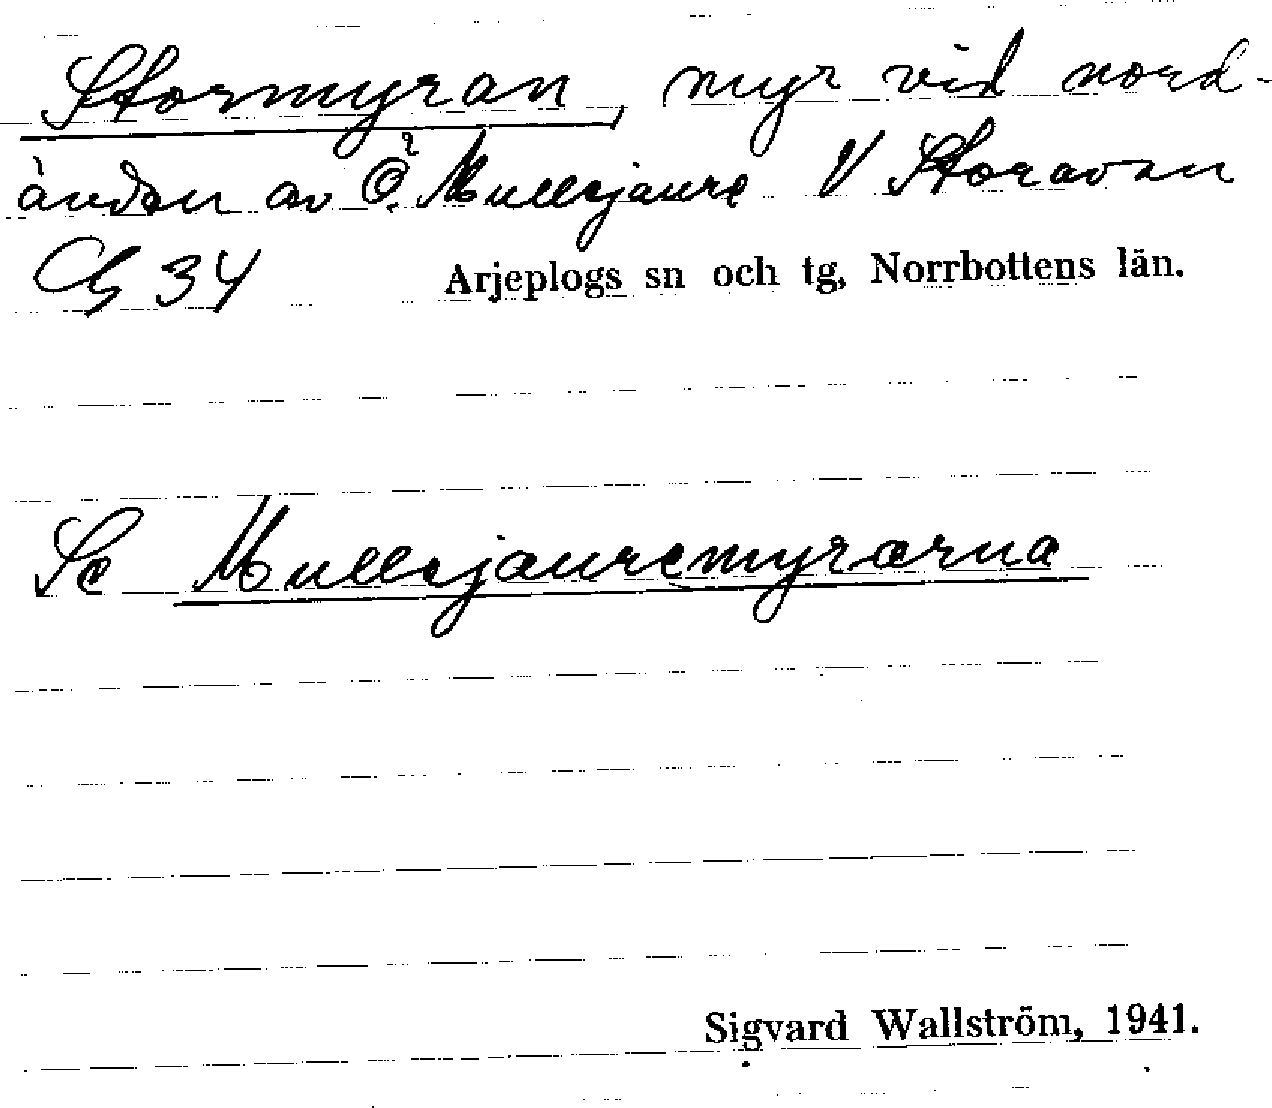 Stormyran, myr vid nord-
ändan av Ö. Mullejaure V Storavan
G 34 Arjeplogs sn och tg, Norrbottens län.
Se Mullejauremyrarna
Sigvard Wallström, 1941.